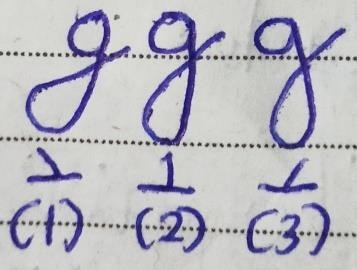 g g g
1 1 1
(1) (2) (3)